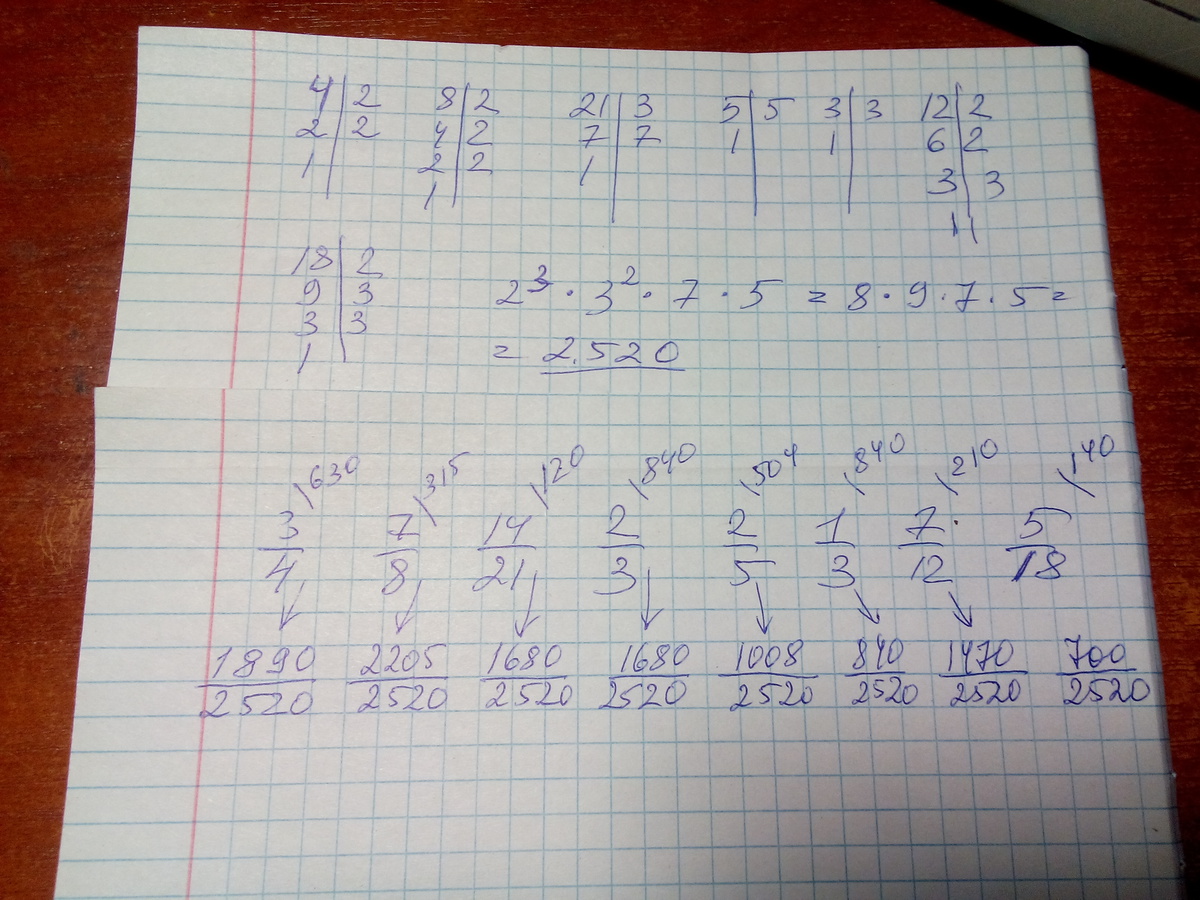 4 | 2 8 | 2 21 | 3 5 | 5 3 | 3 12 | 2
2 | 2 4 | 2 7 | 7 1 | 1 | 6 | 2
1 | 2 | 2 1 | 3 | 3
1 | 1 |
18 | 2
9 | 3 2³ · 3² · 7 · 5 = 8 · 9 · 7 · 5 =
3 | 3
1 | = 2.520
\630 \315 \120 \840 \504 \840 \210 \140
3/4 7/8 14/21 2/3 2/5 1/3 7/12 5/18
1890/2520 2205/2520 1680/2520 1680/2520 1008/2520 840/2520 1470/2520 700/2520